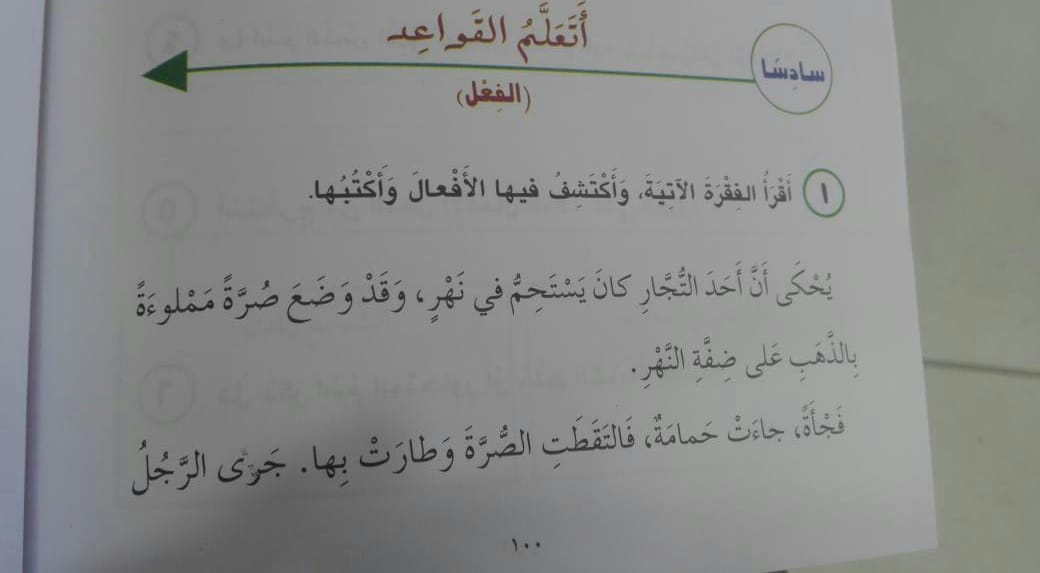 سادِسًا
أَتَعَلَّمُ القَواعِد
(الفِعْل)
١ أَقْرَأُ الفِقْرَةَ الآتِيَةَ، وَأَكْتَشِفُ فيها الأَفْعالَ وَأَكْتُبُها.
يُحْكَى أَنَّ أَحَدَ التُّجَّارِ كانَ يَسْتَحِمُّ في نَهْرٍ، وَقَدْ وَضَعَ صُرَّةً مَمْلوءَةً
بِالذَّهَبِ عَلى ضِفَّةِ النَّهْرِ.
فَجْأَةً، جاءَتْ حَمامَةٌ، فَالتَقَطَتِ الصُّرَّةَ وَطارَتْ بِها. جَرَى الرَّجُلُ
١٠٠